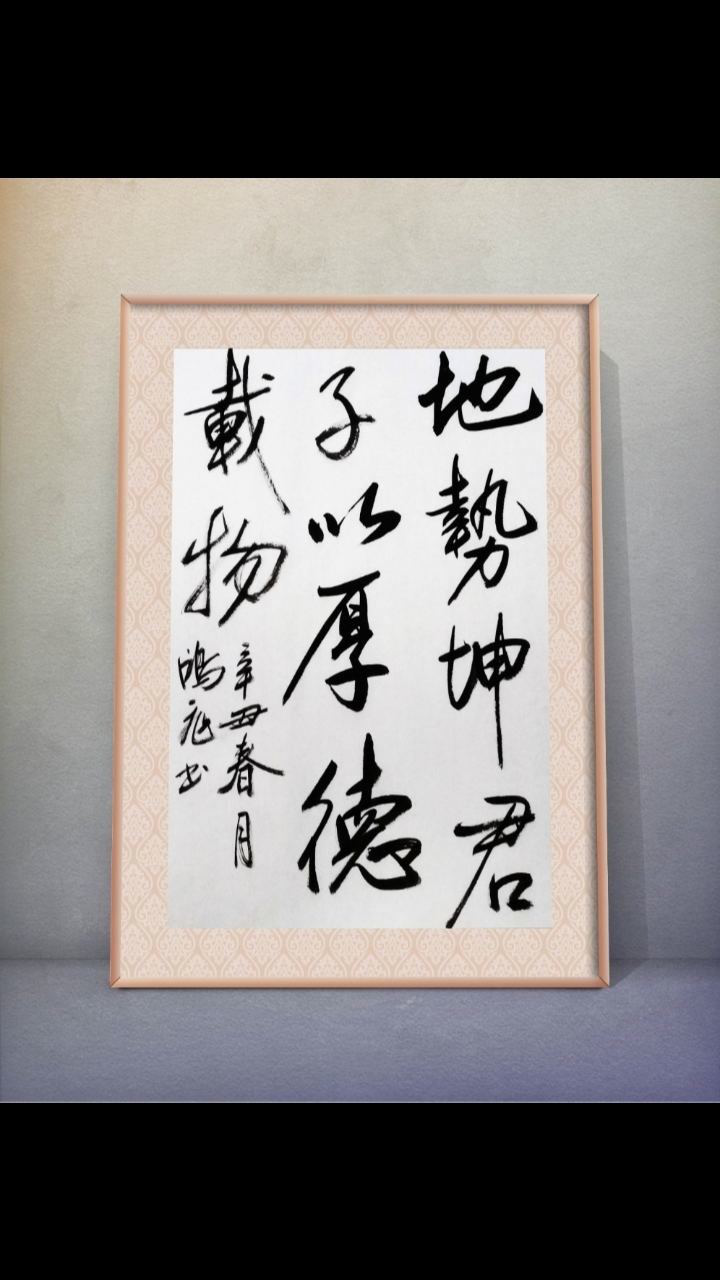 地勢坤君
子以厚德
載物
辛丑春月
鴻彪书